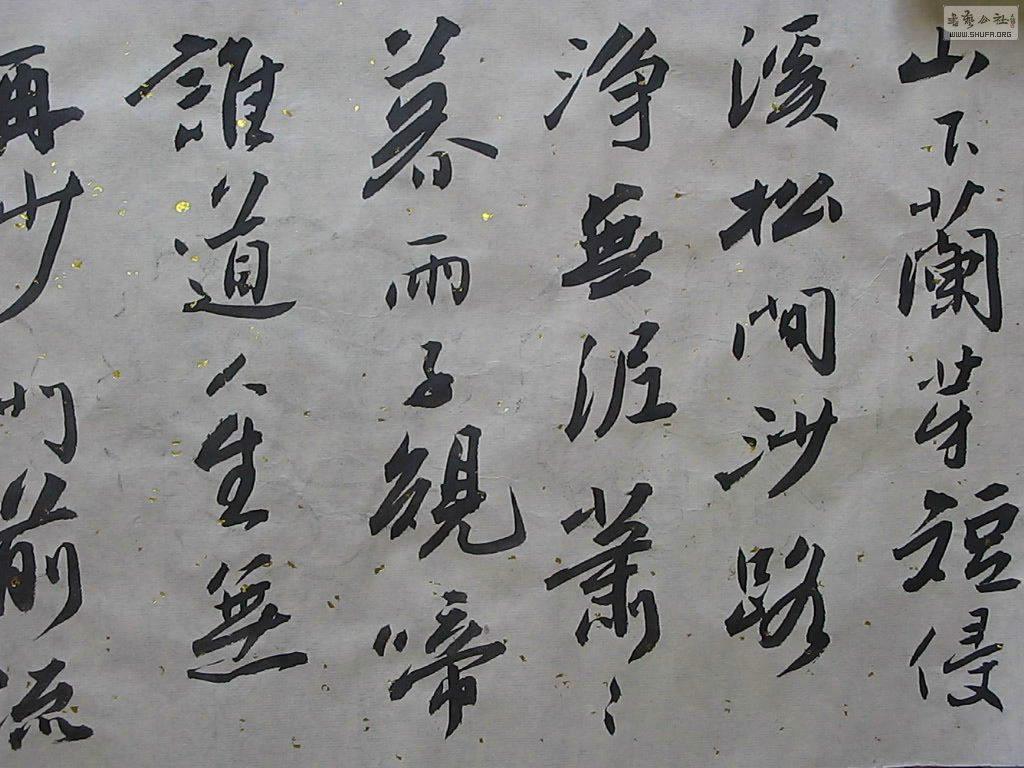 山下蘭芽短侵
溪松間沙路
淨無泥蕭〻
暮雨子規啼
誰道人生無
再少門前流
書藝公社
WWW.SHUFA.ORG